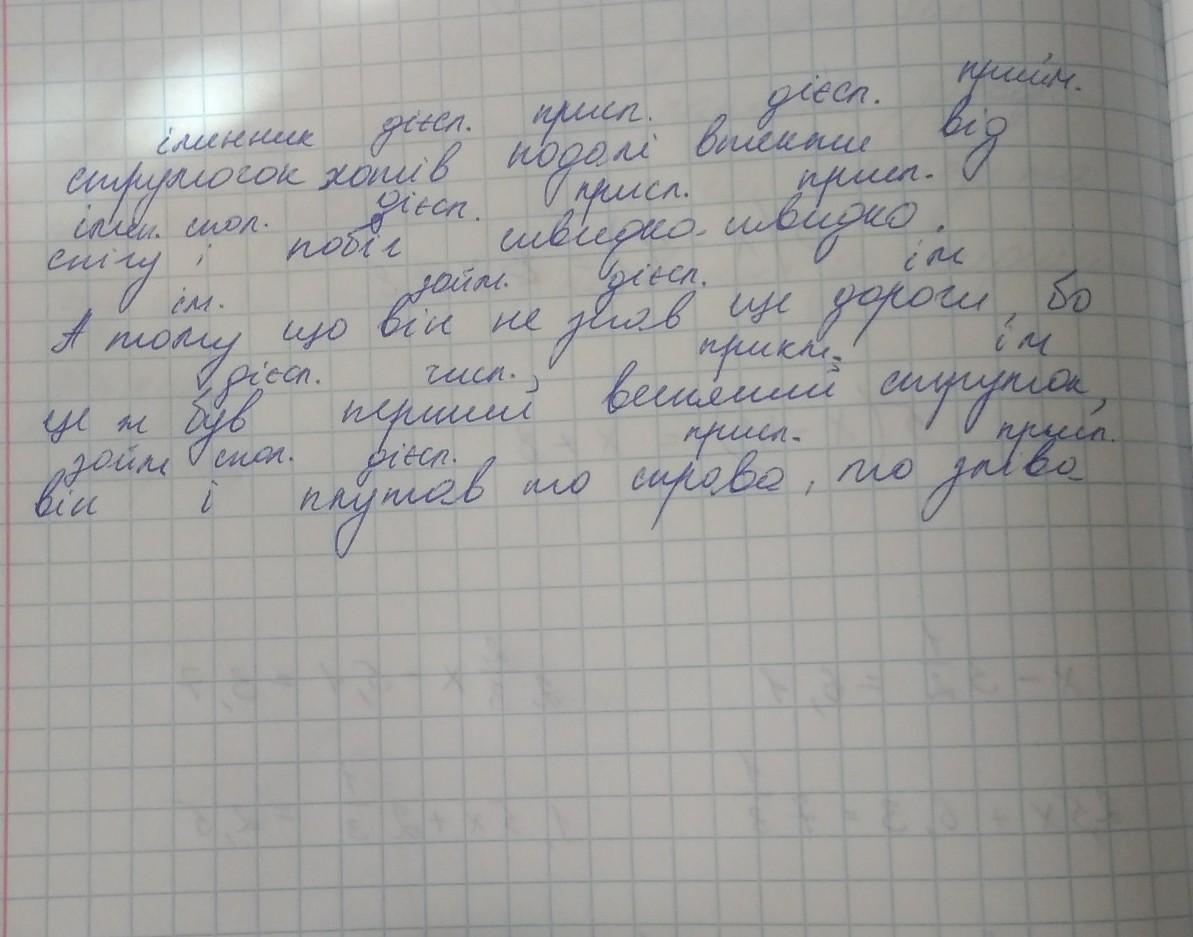 іменник дієсл. присл. дієсл. прийм.
струмочок хотів подалі втекти від
імен. спол. дієсл. присл. присл.
снігу і побіг швидко-швидко.
ім. займ. дієсл. ім
А тому що він не знав ще дороги, бо
дієсл. числ. прикм. ім
це ж був перший весняний струмок,
займ спол. дієсл. присл. присл.
він і плутав то справа, то зліва